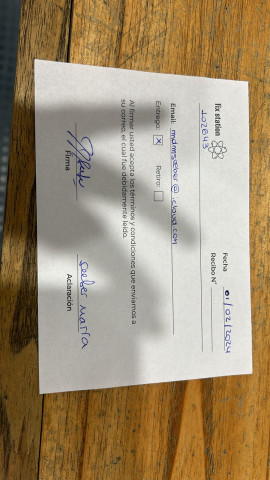 fix station
Fecha 01/02/2024
102643
Recibo N°
Email: mdmseeber@icloud.com
Entrega: X Retiro:
Al firmar usted acepta los términos y condiciones que enviamos a
su correo, el cual fue debidamente leído.
Seeber María
Firma Aclaración